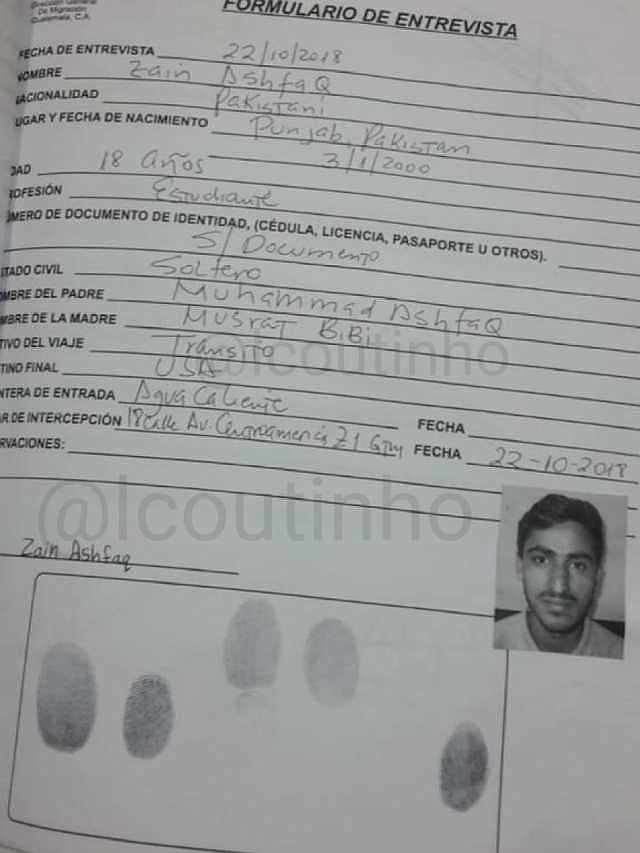 Dirección General
De Migración
Guatemala, C.A.
FORMULARIO DE ENTREVISTA
FECHA DE ENTREVISTA 22/10/2018
NOMBRE Zain Ashfaq
NACIONALIDAD Pakistani
UGAR Y FECHA DE NACIMIENTO Punjab, Pakistan
3/1/2000
DAD 18 años
ROFESIÓN Estudiante
ÚMERO DE DOCUMENTO DE IDENTIDAD, (CÉDULA, LICENCIA, PASAPORTE U OTROS).
S/ Documento
STADO CIVIL Soltero
OMBRE DEL PADRE Muhammad Ashfaq
MBRE DE LA MADRE Musrat BiBi
TIVO DEL VIAJE Transito
TINO FINAL USA
@lcoutinho
NTERA DE ENTRADA Agua Caliente FECHA
AR DE INTERCEPCIÓN 18 Calle Av. Centroamerica Z1 FECHA 22-10-2018
RVACIONES:
@lcoutinho
Zain Ashfaq